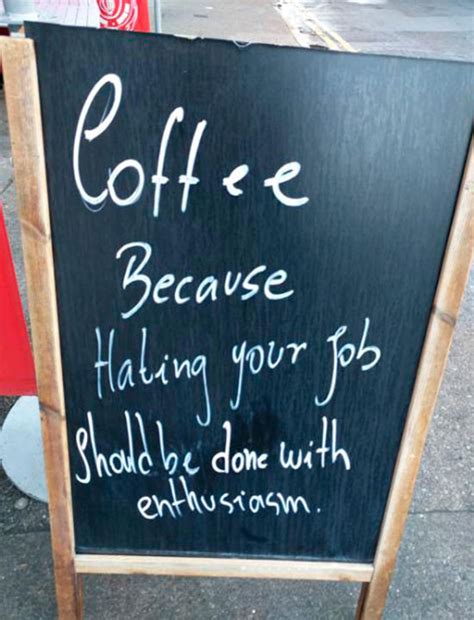 Coffee
Because
Hating your Job
Should be done with
enthusiasm.